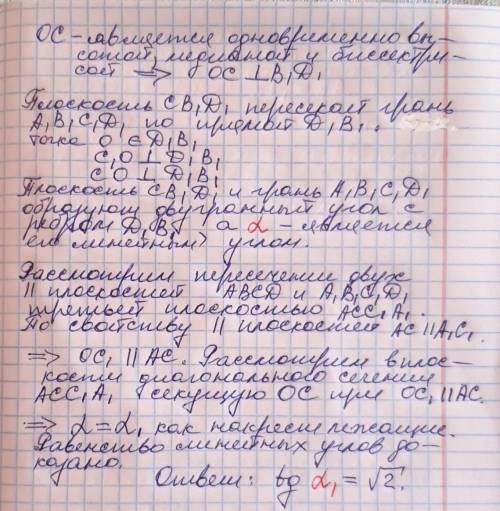 OC – является одновременно вы-
сотой, медианой и биссектри-
сой ⟹ OC ⊥ B₁D₁
Плоскость CB₁D₁ пересекает грань
A₁B₁C₁D₁ по прямой D₁B₁.
точка O ∈ D₁B₁
C₁O ⊥ D₁B₁
CO ⊥ D₁B₁
Плоскость CB₁D₁ и грань A₁B₁C₁D₁
образуют двугранный угол с
ребром D₁B₁, а α – является
его линейным углом.
Рассмотрим пересечение двух
|| плоскостей ABCD и A₁B₁C₁D₁
третьей плоскостью ACC₁A₁.
По свойству || плоскостей AC || A₁C₁.
⟹ OC₁ || AC. Рассмотрим в плос-
кости диагонального сечения
ACC₁A₁ секущую OC при OC₁ || AC.
⟹ α = α₁ как накрест лежащие.
Равенство линейных углов до-
казано.
Ответ: tg α₁ = √2.